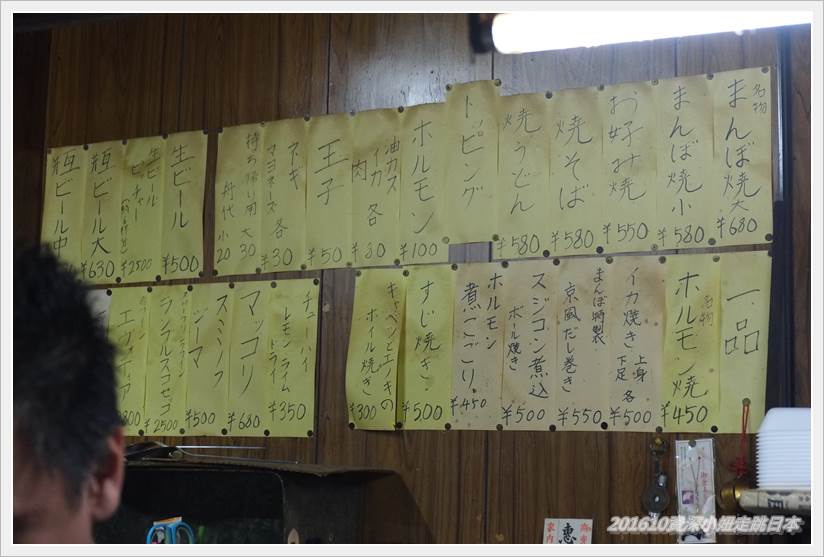 名物
まんぼ焼大
¥680
まんぼ焼小
¥580
お好み焼
¥550
焼そば
¥580
焼うどん
¥580
トッピング
ホルモン
¥100
油カス
イカ 各
肉
¥80
玉子
¥50
ネギ
マヨネーズ 各
¥30
持ち帰り用 大30
舟代 小20
生ビール
¥500
生ビール
ピッチャー
¥2500
瓶ビール大
¥630
瓶ビール中
一品
名物
ホルモン焼
¥450
イカ焼き 上身
下足 各
¥500
まんぼ特製
京風だし巻き
¥550
スジコン煮込
ボール焼き
¥500
ホルモン
煮こごり
¥450
すじ焼き
¥500
キャベツとエノキの
ホイル焼き
¥300
チューハイ
レモン ライム
ドライ
¥350
マッコリ
¥680
スミノフ
¥500
ランブルスコセッコ
¥2500
恵
201610資深小姐走跳日本